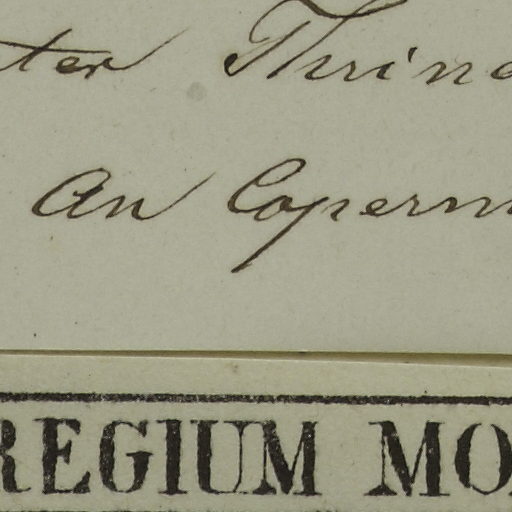 ter Thrinc
An Copern
REGIUM MO